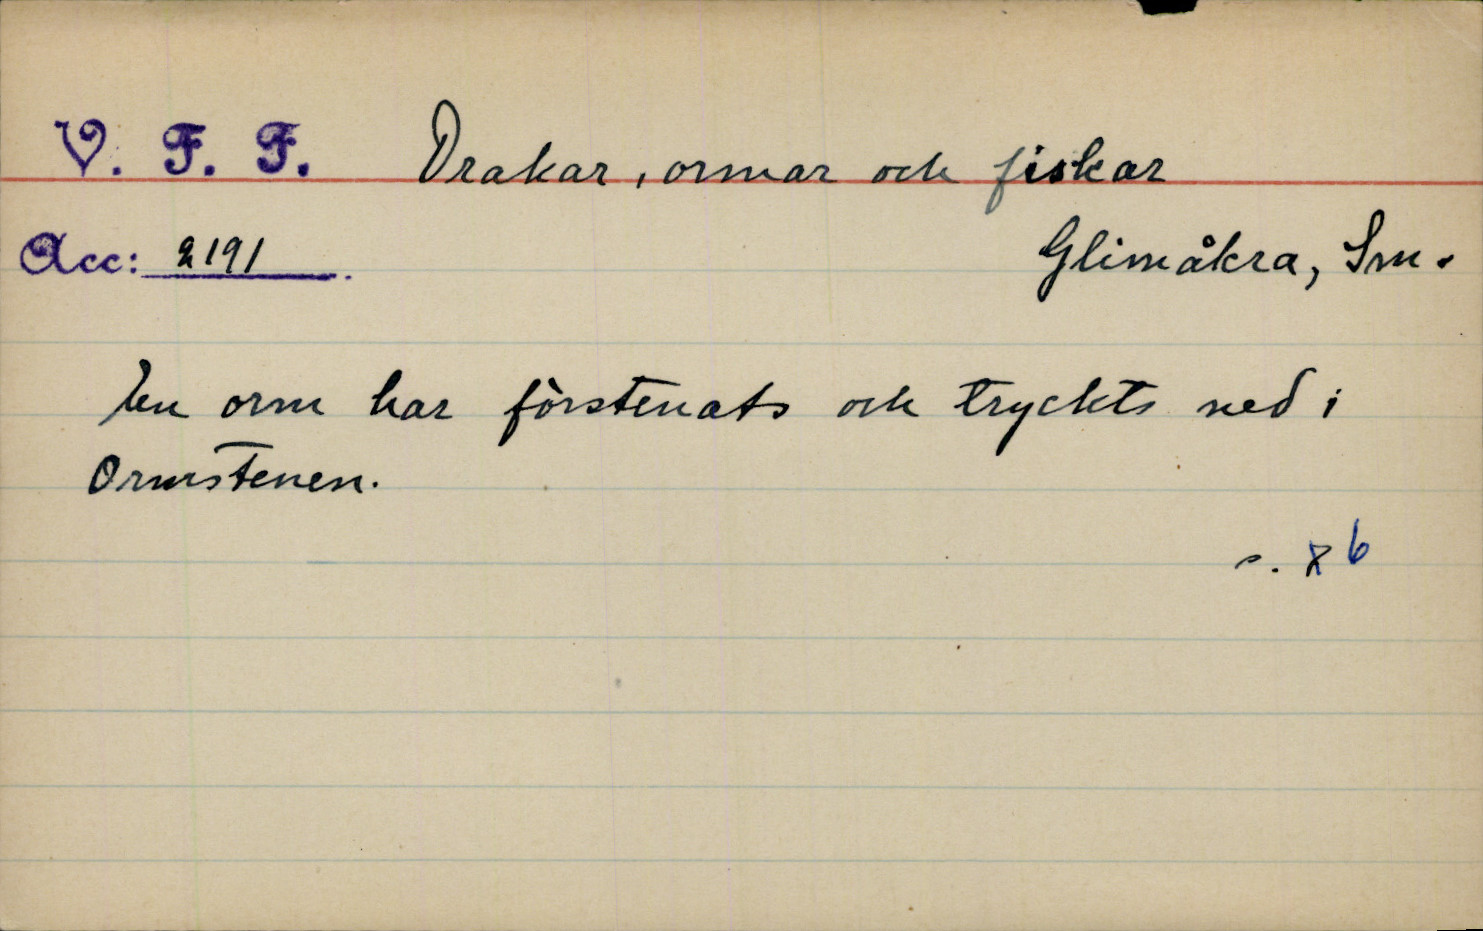 V. F. F. Drakar, ormar och fiskar
Acc: 2191. Glimåkra, Sm.
En orm har förstenats och tryckts ned i
Ormstenen.
s. 6